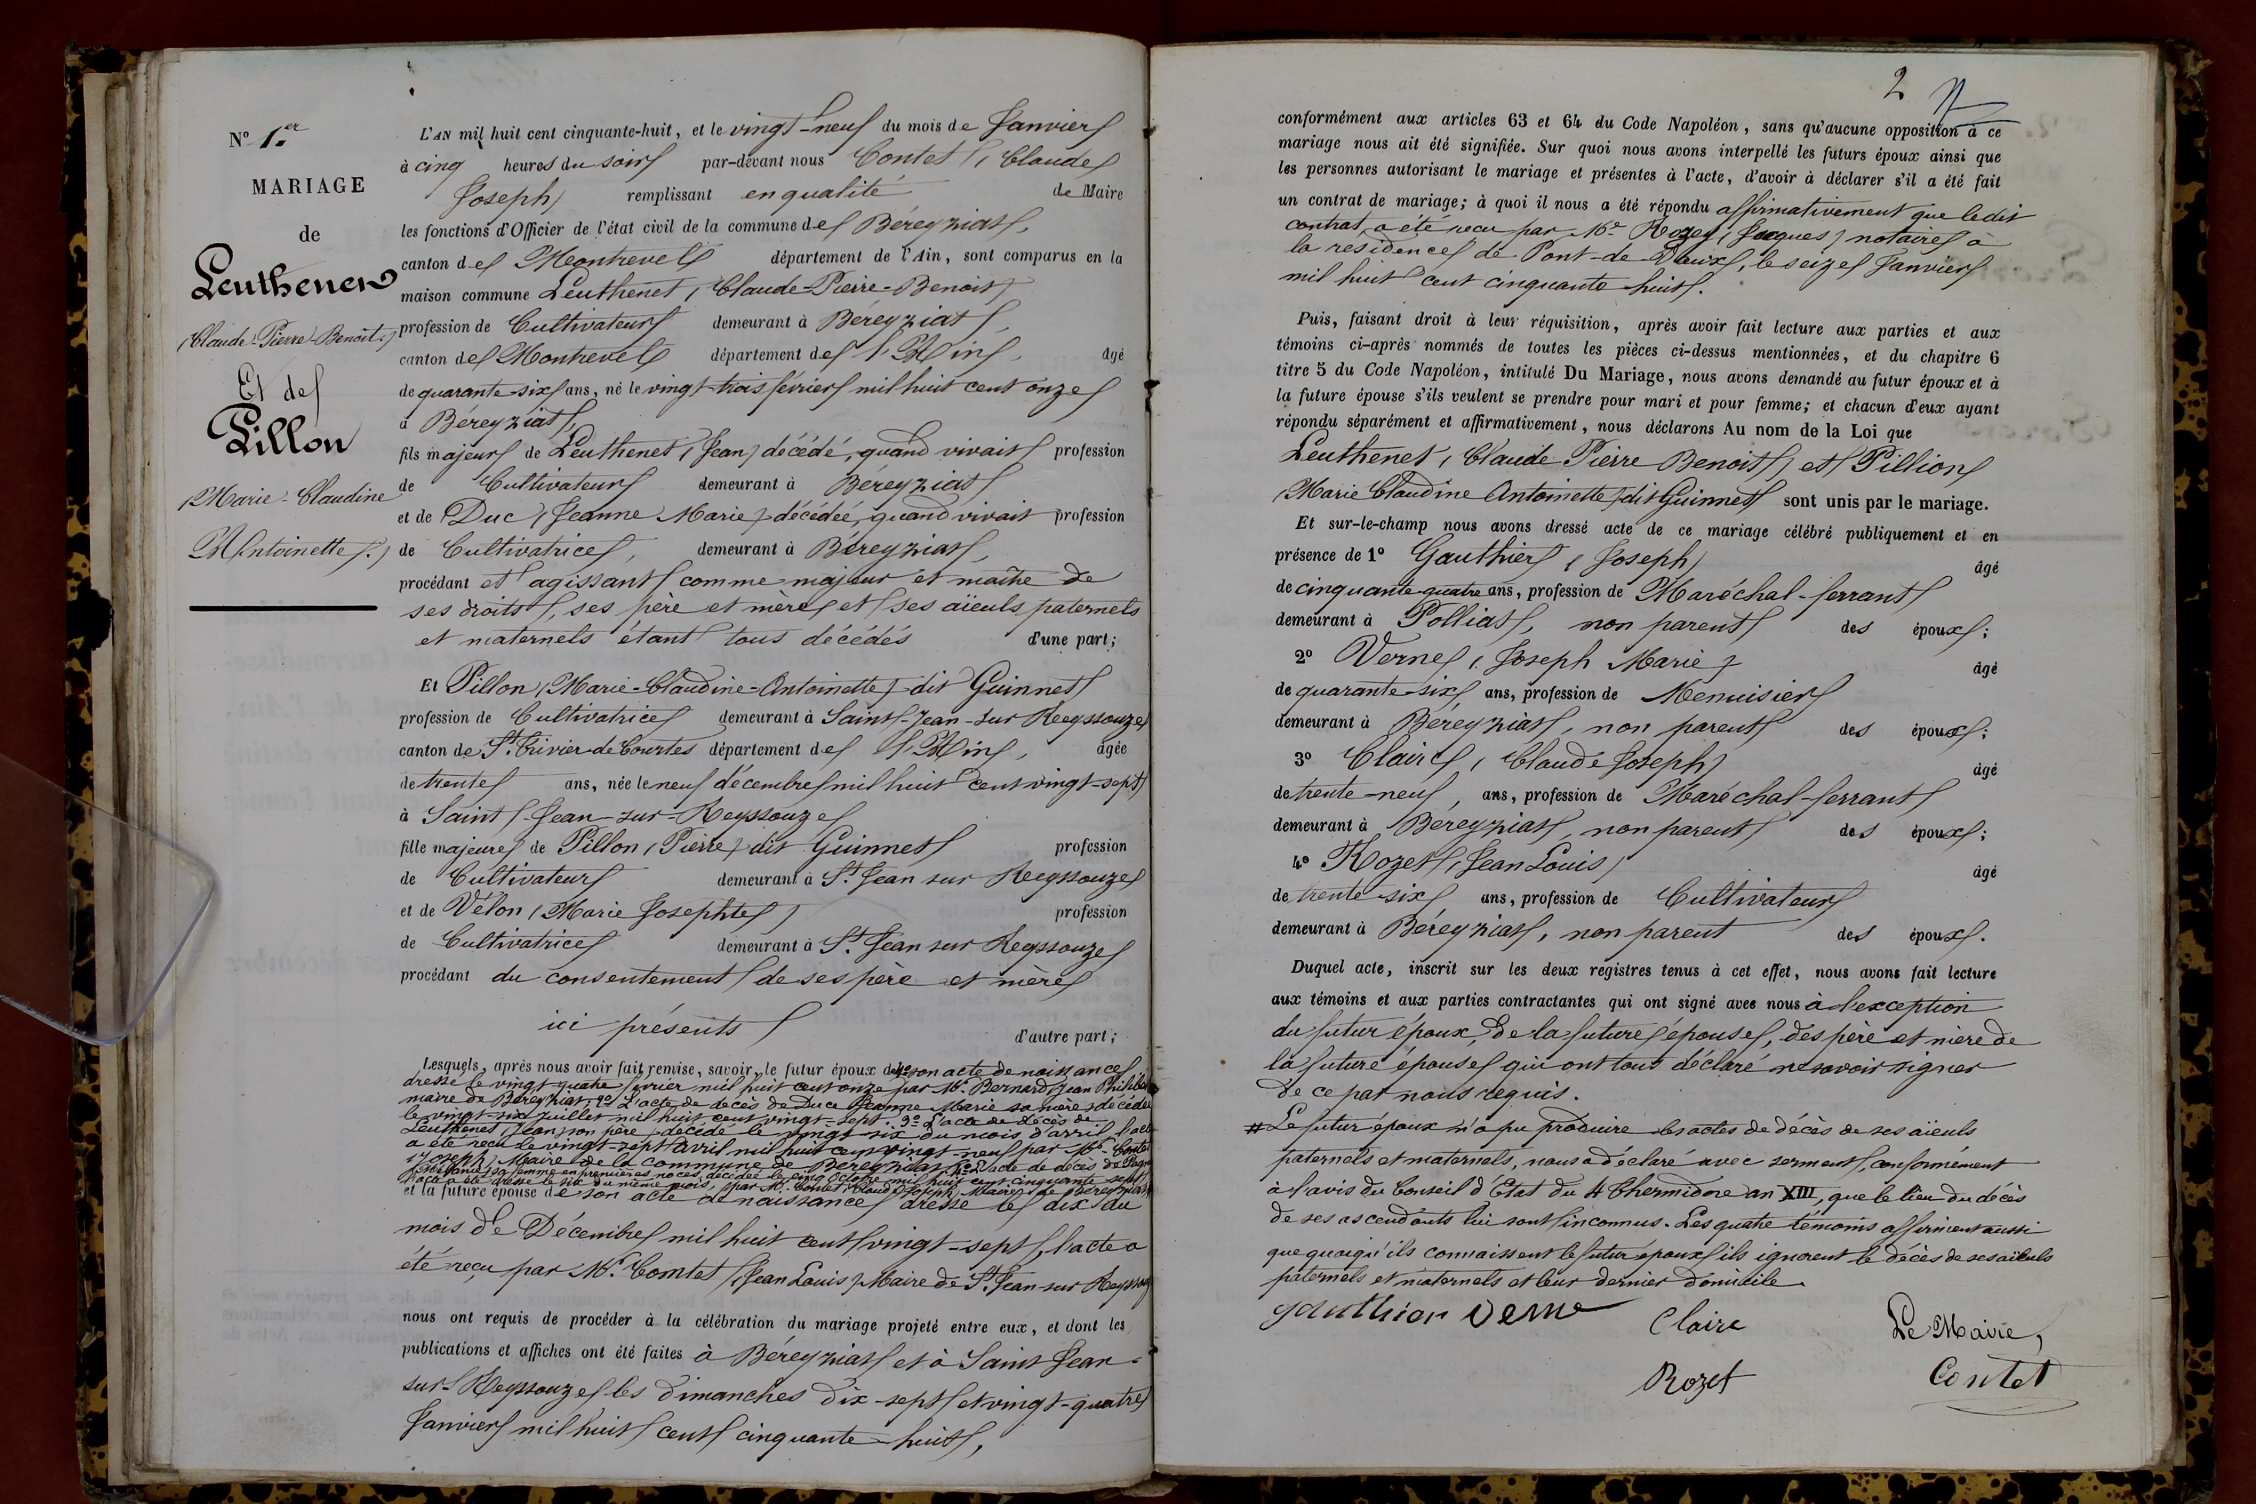 N° 1.er
MARIAGE
de
Leuthenet
(Claude-Pierre-Benoit)
Et de
Pillon
(Marie-Claudine
Antoinette.)
L'AN mil huit cent cinquante-huit, et le vingt-neuf du mois de Janvier
à cinq heures du soir par-devant nous Contet (Claude
Joseph) remplissant en qualité de Maire
les fonctions d'Officier de l'état civil de la commune de Béreyziat,
canton de Montrevel département de l'Ain, sont comparus en la
maison commune Leuthenet (Claude-Pierre-Benoit)
profession de Cultivateur demeurant à Béreyziat,
canton de Montrevel département de l'Ain, âgé
de quarante-six ans, né le vingt-trois février mil huit cent onze
à Béreyziat,
fils majeur de Leuthenet (Jean) décédé, quand vivait profession
de Cultivateur demeurant à Béreyziat
et de Duc (Jeanne Marie) décédée, quand vivait profession
de Cultivatrice, demeurant à Béreyziat,
procédant et agissant comme majeur et maître de
ses droits, ses père et mère et ses aïeuls paternels
et maternels étant tous décédés d'une part;
Et Pillon (Marie-Claudine-Antoinette) dit Guinnet
profession de Cultivatrice demeurant à Saint-Jean-sur-Reyssouze
canton de St. Trivier de Courtes département de l'Ain, âgée
de trente ans, née le neuf décembre mil huit cent vingt-sept
à Saint-Jean-sur-Reyssouze
fille majeure de Pillon (Pierre) dit Guinnet profession
de Cultivateur demeurant à St. Jean sur Reyssouze
et de Vélon (Marie Josephte) profession
de Cultivatrice demeurant à St. Jean sur Reyssouze
procédant du consentement de ses père et mère
ici présents d'autre part;
Lesquels, après nous avoir fait remise, savoir, le futur époux de 1° son acte de naissance
dressé le vingt quatre février mil huit cent onze par Mr. Bernard Jean Philibert
maire de Béreyziat, 2° L'acte de décès de Duc (Jeanne Marie sa mère) décédée
le vingt-six Juillet mil huit cent vingt-sept. 3° L'acte de décès de
Leuthenet (Jean) son père, décédé le vingt-six du mois d'avril, l'acte
a été reçu le vingt-sept avril mil huit cent vingt-neuf par Mr. Contet
(Joseph) Maire de la commune de Béreyziat, 4° L'acte de décès de
sa femme en premières noces, décédée le cinq Octobre mil huit cent cinquante sept
l'acte a été dressé le six du même mois, par Mr. Contet (Claude Joseph) Maire de Béreyziat,
et la future épouse de son acte de naissance dressé le dix du
mois de Décembre mil huit cent vingt-sept, l'acte a
été reçu par Mr. Comtet (Jean Louis) Maire de St. Jean sur Reyssouze
nous ont requis de procéder à la célébration du mariage projeté entre eux, et dont les
publications et affiches ont été faites à Béreyziat et à Saint Jean-
sur-Reyssouze les dimanches dix-sept et vingt-quatre
Janvier mil huit cent cinquante-huit,
2
conformément aux articles 63 et 64 du Code Napoléon, sans qu'aucune opposition à ce
mariage nous ait été signifiée. Sur quoi nous avons interpellé les futurs époux ainsi que
les personnes autorisant le mariage et présentes à l'acte, d'avoir à déclarer s'il a été fait
un contrat de mariage; à quoi il nous a été répondu affirmativement que ledit
contrat a été reçu par Me. Rozey (Jacques) notaire à
la résidence de Pont-de-Vaux, le seize Janvier
mil huit cent cinquante-huit.
Puis, faisant droit à leur réquisition, après avoir fait lecture aux parties et aux
témoins ci-après nommés de toutes les pièces ci-dessus mentionnées, et du chapitre 6
titre 5 du Code Napoléon, intitulé Du Mariage, nous avons demandé au futur époux et à
la future épouse s'ils veulent se prendre pour mari et pour femme; et chacun d'eux ayant
répondu séparément et affirmativement, nous déclarons Au nom de la Loi que
Leuthenet (Claude Pierre Benoit) et Pillion
(Marie Claudine Antoinette) dit Guinnet sont unis par le mariage.
Et sur-le-champ nous avons dressé acte de ce mariage célébré publiquement et en
présence de 1° Gauthier (Joseph) âgé
de cinquante-quatre ans, profession de Maréchal-ferrant
demeurant à Polliat, non parent des époux;
2° Verne (Joseph Marie) âgé
de quarante-six ans, profession de Menuisier
demeurant à Béreyziat, non parent des époux;
3° Claire (Claude Joseph) âgé
de trente-neuf, ans, profession de Maréchal-ferrant
demeurant à Béreyziat, non parent des époux;
4° Rozet (Jean Louis) âgé
de trente six ans, profession de Cultivateur
demeurant à Béreyziat, non parent des époux.
Duquel acte, inscrit sur les deux registres tenus à cet effet, nous avons fait lecture
aux témoins et aux parties contractantes qui ont signé avec nous à l'exception
du futur époux, de la future épouse, des père et mère de
la future épouse qui ont tous déclaré ne savoir signer
de ce par nous requis.
# Le futur époux n'a pu produire les actes de décès de ses aïeuls
paternels et maternels, nous a déclaré avec serment, conformément
à l'avis du Conseil d'Etat du 4 Thermidore an XIII, que le lieu du décès
de ses ascendants lui sont inconnus. Les quatre témoins affirment aussi
que quoiqu'ils connaissent le futur époux ils ignorent le décès de ses aïeuls
paternels et maternels et leur dernier domicile.
gauthier Verne
Claire
Le Maire,
Rozet
Contet